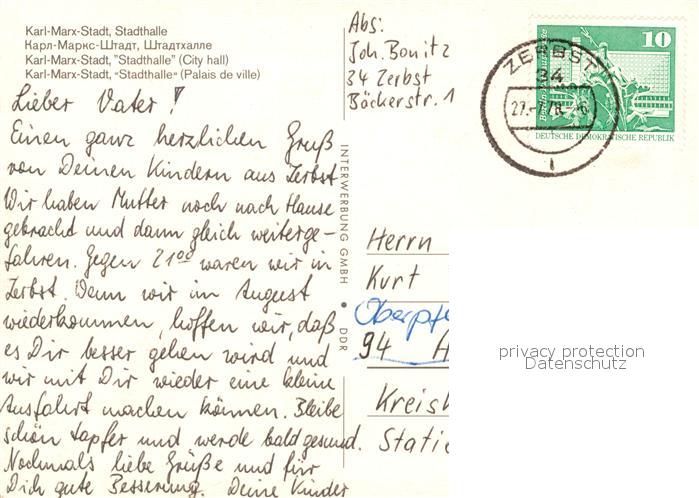 Karl-Marx-Stadt, Stadthalle
Карл-Маркс-Штадт, Штадтхалле
Karl-Marx-Stadt, "Stadthalle" (City hall)
Karl-Marx-Stadt, «Stadthalle» (Palais de ville)
Lieber Vater!
Einen ganz herzlichen Gruß
von Deinen Kindern aus Zerbst.
Wir haben Mutter noch nach Hause
gebracht und dann gleich weiterge-
fahren. Gegen 21⁰⁰ waren wir in
Zerbst. Wenn wir im August
wiederkommen, hoffen wir, daß
es Dir besser gehen wird und
wir mit Dir wieder eine kleine
Ausfahrt machen können. Bleibe
schön tapfer und werde bald gesund.
Nochmals liebe Grüße und für
Dich gute Besserung. Deine Kinder
INTERWERBUNG GMBH • DDR
Abs:
Joh. Bonitz
34 Zerbst
Bäckerstr. 1
ZERBST
34
10
DEUTSCHE DEMOKRATISCHE REPUBLIK
Herrn
Kurt
Oberpf
94
Kreis
Stati
privacy protection
Datenschutz